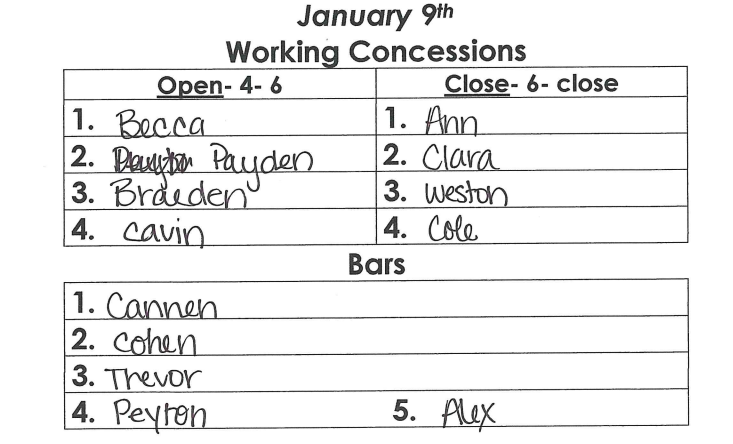 January 9th
Working Concessions
Open- 4- 6 Close- 6- close
1. Becca 1. Ann
2. Payden 2. Clara
3. Braeden 3. Weston
4. Cavin 4. Cole
Bars
1. Cannen
2. Cohen
3. Trevor
4. Peyton 5. Alex